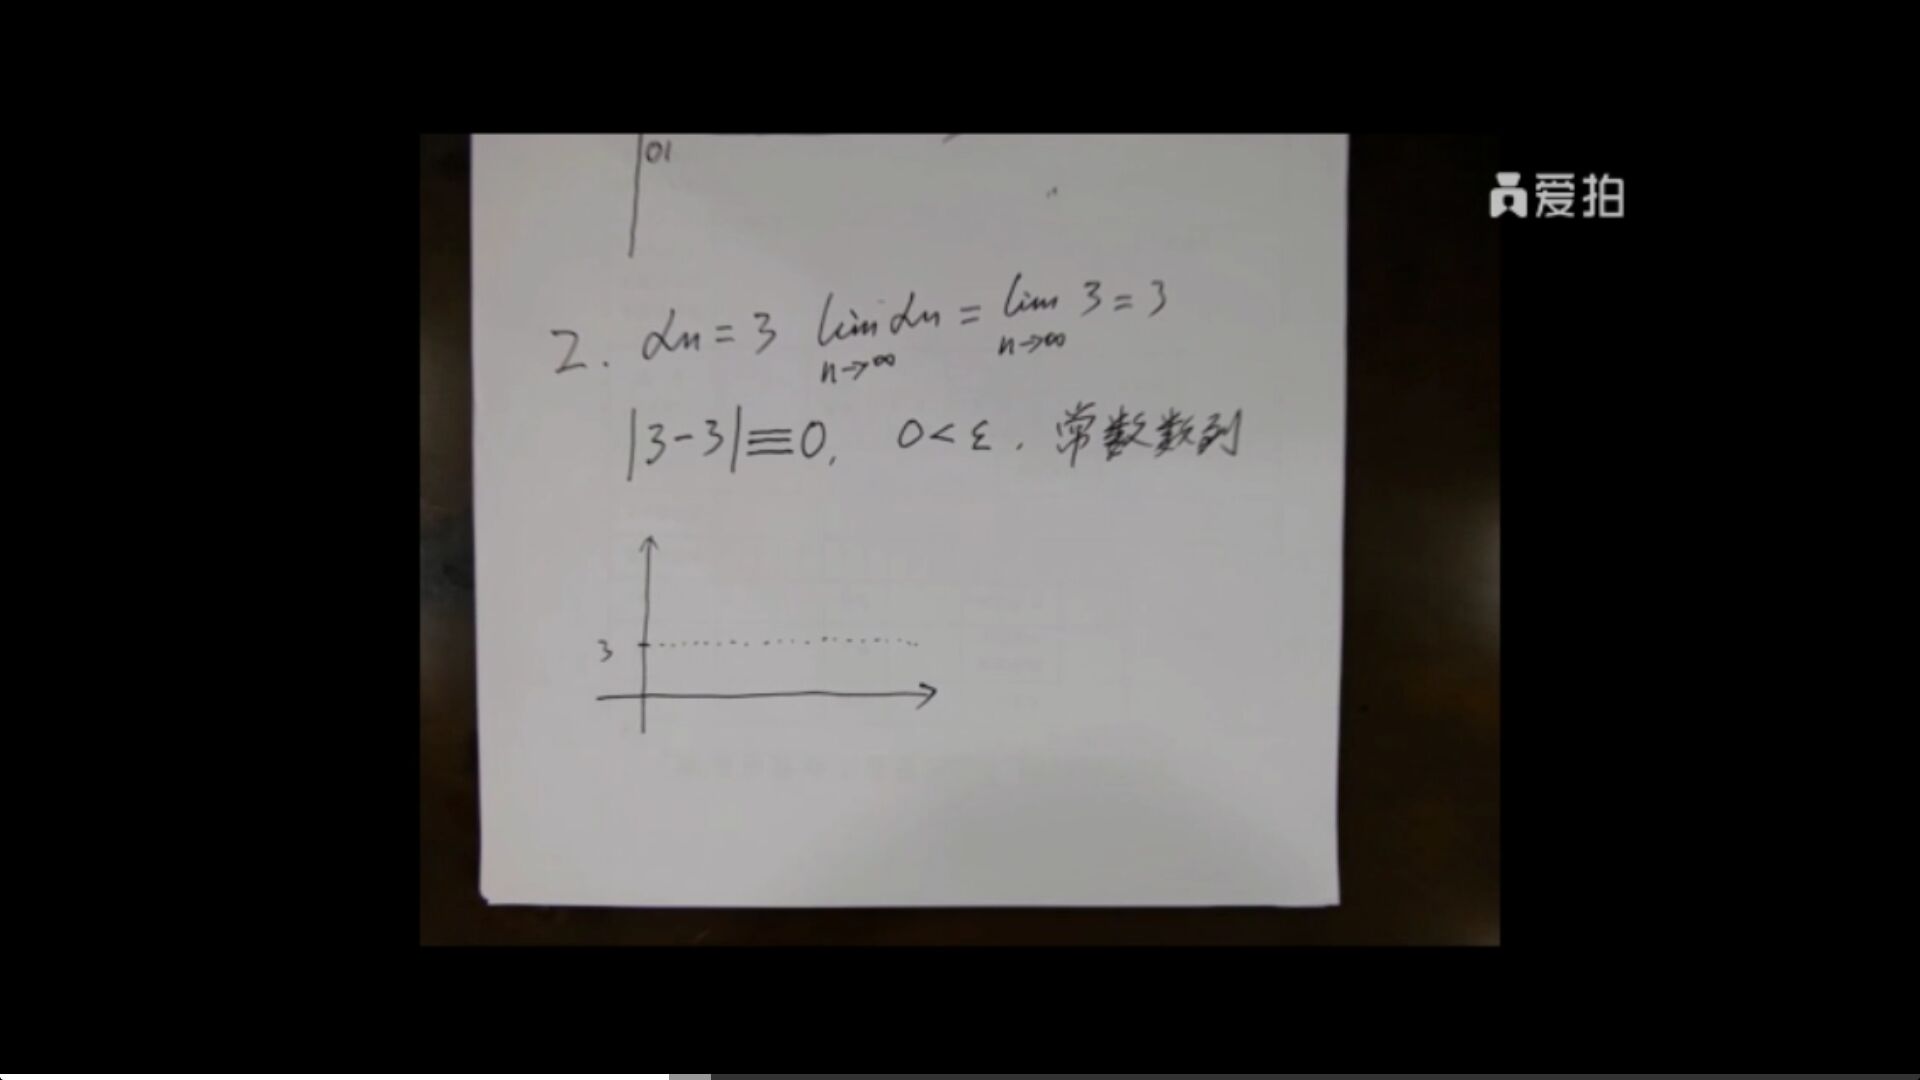 01
爱拍
2. αn = 3 lim n→∞ αn = lim n→∞ 3 = 3
|3-3|≡0, 0<ε. 常数数列
3